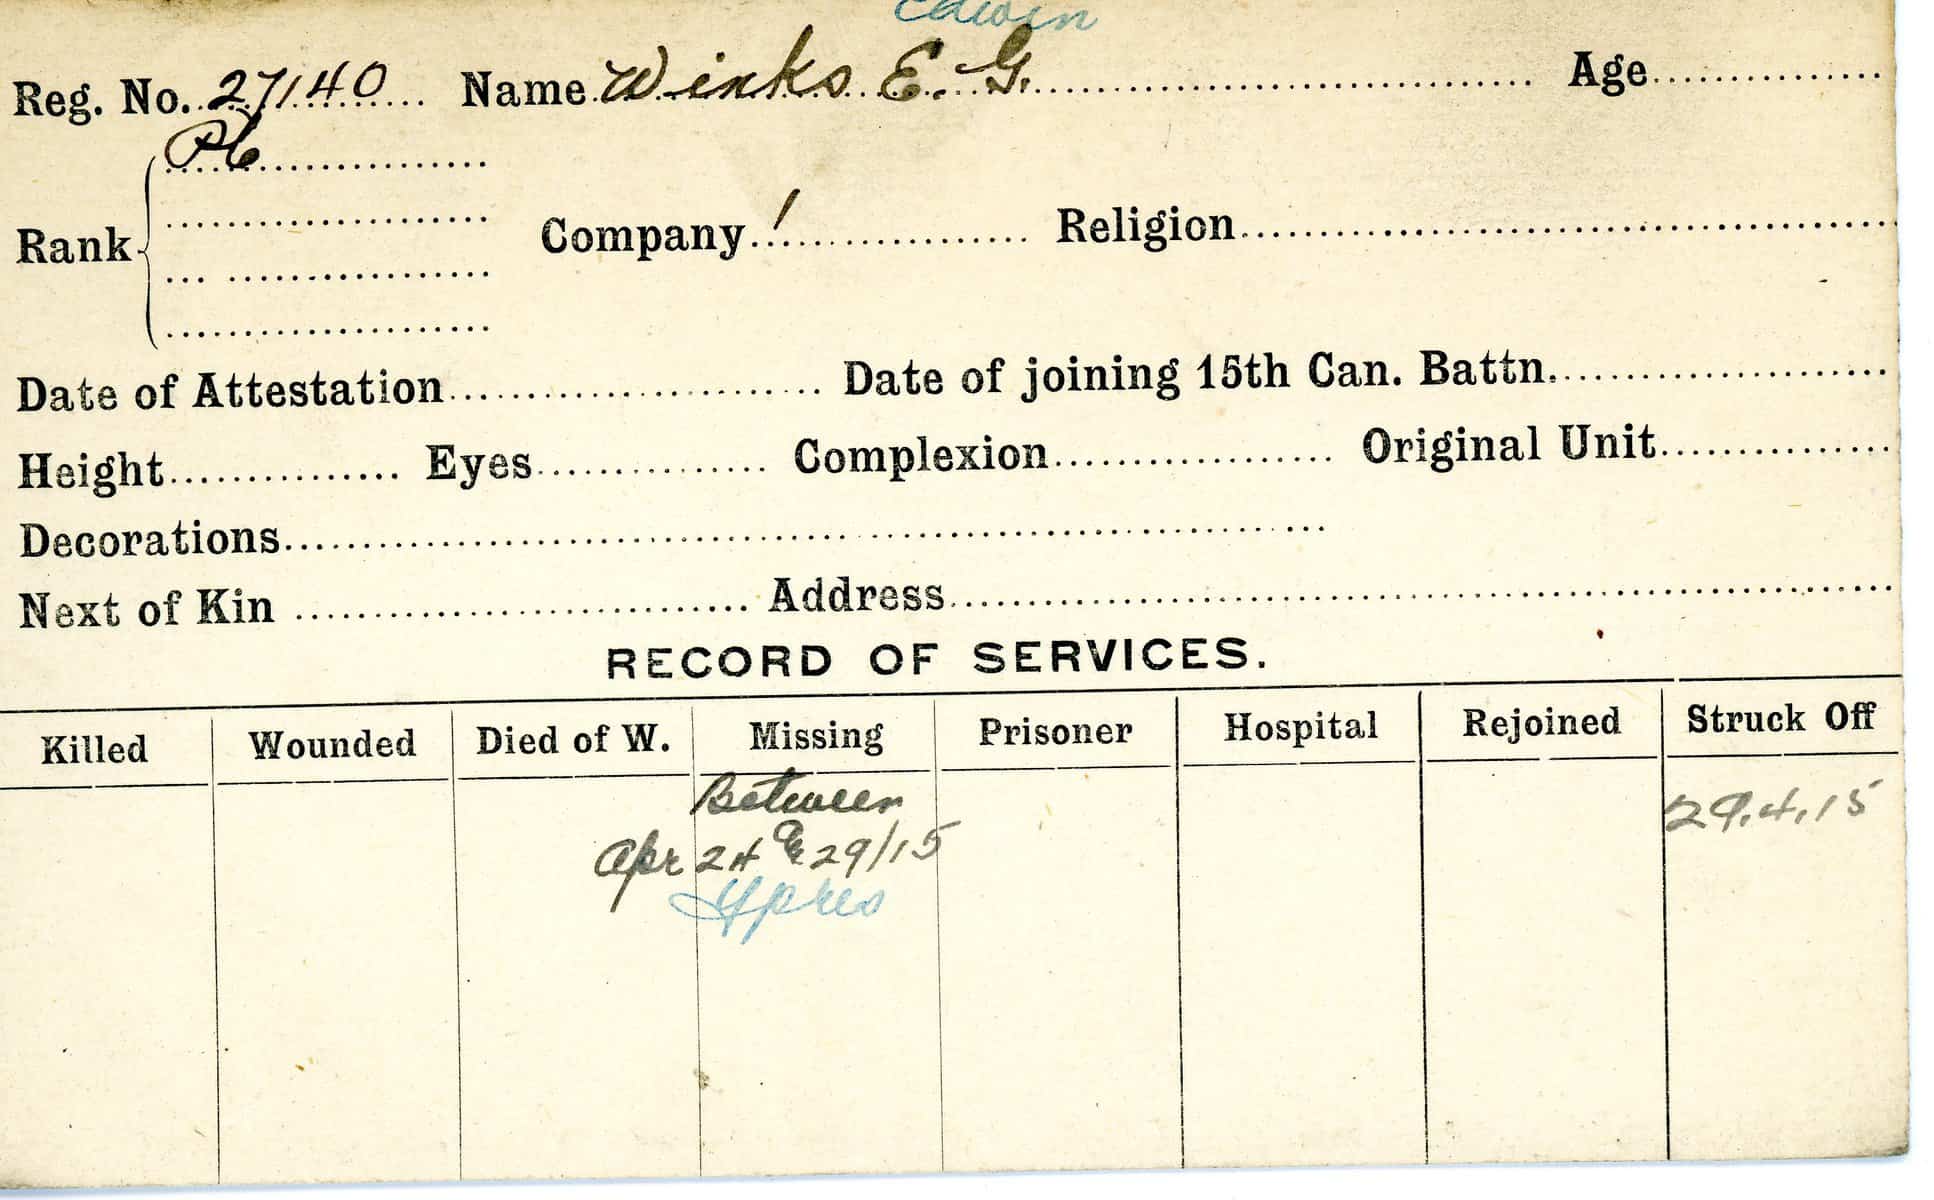 Edwin
Reg. No. 27140 Name Winks E. G. Age
Pte
Rank Company 1 Religion
Date of Attestation Date of joining 15th Can. Battn.
Height Eyes Complexion Original Unit
Decorations
Next of Kin Address
RECORD OF SERVICES.
Killed Wounded Died of W. Missing Prisoner Hospital Rejoined Struck Off
Between 29.4.15
Apr 24 & 29/15
Ypres